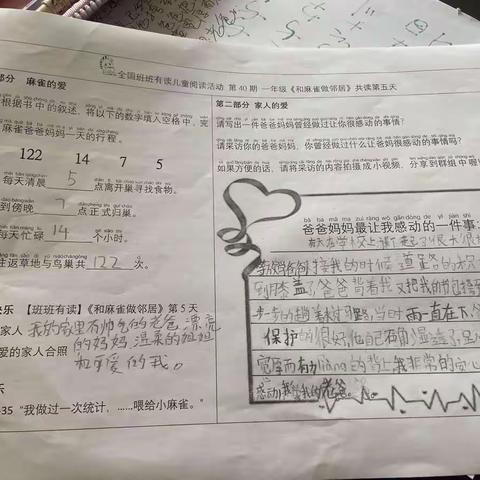 全国班班有读儿童阅读活动 第 40 期 一年级《和麻雀做邻居》共读第五天
部分 麻雀的爱
根据书中的叙述，将以下的数字填入空格中，完
麻雀爸爸妈妈一天的行程。
122 14 7 5
每天清晨 5 点离开巢寻找食物。
到傍晚 7 点正式归巢。
每天忙碌 14 个小时。
往返草地与鸟巢共 122 次。
乐 【班班有读】《和麻雀做邻居》第 5 天
家人 我的家里有帅气的老爸,漂亮
的妈妈,温柔的姐姐
爱的家人合照
和可爱的我。
乐
-35 “我做过一次统计，……喂给小麻雀。”
第二部分 家人的爱
请写出一件爸爸妈妈曾经做过让你很感动的事情？
请采访你的爸爸妈妈，你曾经做过什么让爸妈很感动的事情吗？
如果方便的话，请将采访的内容拍摄成小视频，分享到群组中喔
bà bà mā mā zuì ràng wǒ gǎn dòng de yí jiàn shì
爸爸妈妈最让我感动的一件事：
接我的时候,道路的水
到膝盖了,爸爸背着我,又把我的书包
步一步的趟着水,当时雨一直在下
保护的很好,他自己
宽厚而有力liàng的背上,我非常的安心
感动,我爱我的老爸